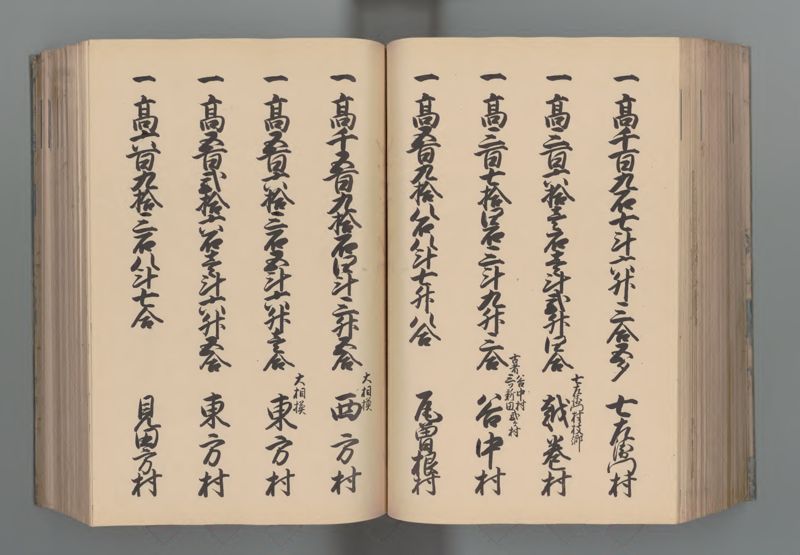 一高千百九石七斗六升三合五夕 七左衛門村
一高三百六拾壱石壱斗弐升四合 七左衛門村枝郷 越巻村
一高三百七拾四石三斗九升三合 古者谷中村 三ツ新田弐ヶ村 谷中村
一高五百九拾八石八斗七升八合 尾曽根村
一高千五百九拾石四斗三升五合 大相模 西方村
一高五百六拾三石五斗六升壱合 大相模 東方村
一高五百弐拾六石壱斗六升五合 東方村
一高六百九拾三石八斗七合 見田方村